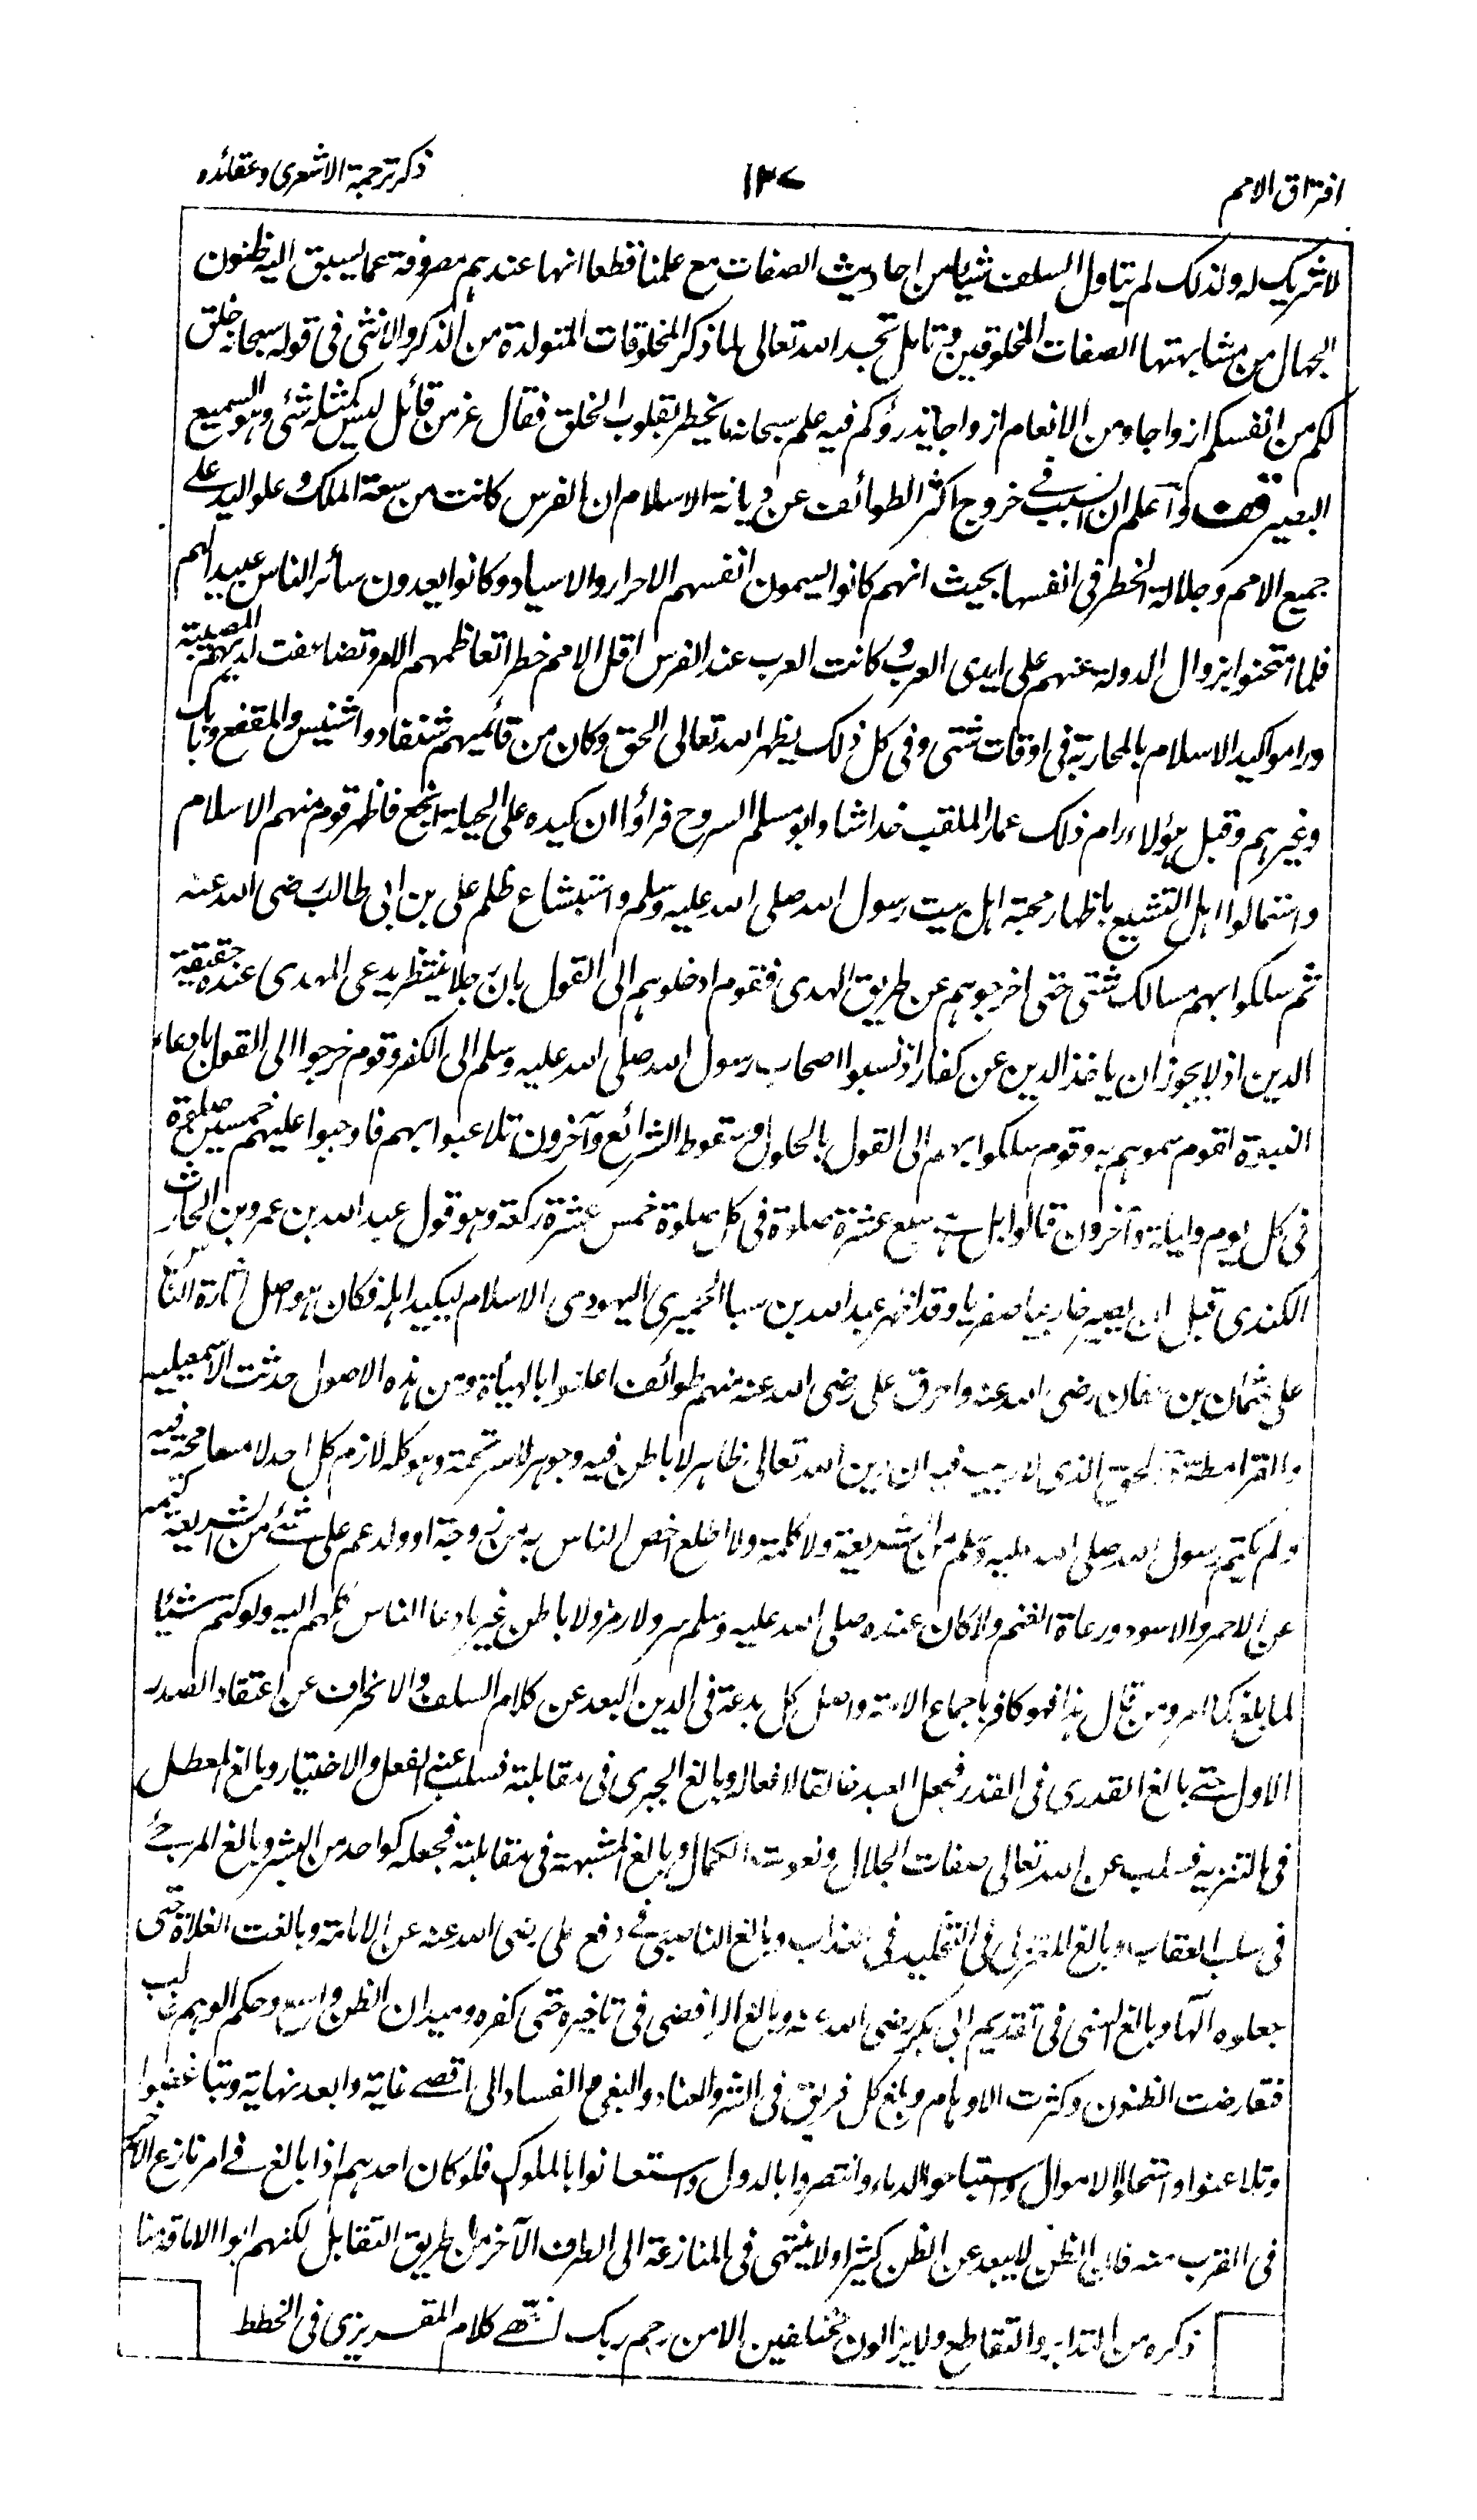 افتراق الامم ١٣٧ ذكر ترجمة الاشعرى وعقائده
لا شريك له ولذلك لم يتاول السلف شيئا من احاديث الصفات مع علمنا قطعا انها عندهم مصروفة عما يسبق اليه ظنون
الجهال من مشابهتها الصفات المخلوقين وتامل تجد الله تعالى لما ذكر المخلوقات المتولدة من الذكر والانثى فى قوله سبحانه خلق
لكم من انفسكم ازواجا ومن الانعام ازواجا يذرؤكم فيه علم سبحانه ما يخطر بقلوب الخلق فقال عز من قائل ليس كمثله شئ وهو السميع
البصير قف وآعلم ان السبب فى خروج اكثر الطوائف عن ديانة الاسلام ان الفرس كانت من سعة الملك وعلو اليد على
جميع الامم وجلالة الخطر فى انفسها بحيث انهم كانوا يسمون انفسهم الاحرار والاسياد وكانوا يعدون سائر الناس عبيد الهم
فلما امتحنوا بزوال الدولة عنهم على ايدى العرب وكانت العرب عند الفرس اقل الامم خطرا تعاظمهم الامر وتضاعفت لديهم المصيبة
وراموا كيد الاسلام بالمحاربة فى اوقات شتى وفى كل ذلك يظهر الله تعالى الحق وكان من قائميهم شنفاد واشنيس والمقفع وبابك
وغيرهم وقبل هؤلاء رام ذلك عمار الملقب خداشا وابو مسلم السروح فرأوا ان كيده على الحيلة انجع فاظهر قوم منهم الاسلام
واستمالوا اهل التشيع باظهار محبة اهل بيت رسول الله صلى الله عليه وسلم واستبشاع ظلم على بن ابى طالب رضى الله عنه
ثم سلكوا بهم مسالك شتى حتى اخرجوهم عن طريق الهدى فقوم ادخلوهم الى القول بان رجلا ينتظر يدعى المهدى عنده حقيقة
الدين اذ لا يجوز ان ياخذ الدين عن كفار اذ نسبوا اصحاب رسول الله صلى الله عليه وسلم الى الكفر وقوم خرجوا الى القول بادعاء
النبوة لقوم سموهم به وقوم سلكوا بهم الى القول بالحلول وسقوط الشرائع وآخرون تلاعبوا بهم فاوجبوا عليهم خمسين صلوة
فى كل يوم وليلة وآخرون قالوا بل هى سبع عشرة صلوة فى كل صلوة خمس عشرة ركعة وهو قول عبد الله بن عمرو بن الحارث
الكندى قبل ان يصير خارجيا صفريا وقد اظهر عبد الله بن سبا الحميرى اليهودى الاسلام ليكيد اهله فكان هو اصل اثارة الناس
على عثمان بن عفان رضى الله عنه واحرق على رضى الله عنه منهم طوائف اعلنوا بالهيأة ومن هذه الاصول حدثت الاسمعيلية
والقرامطة والحق الذى لا ريب فيه ان دين الله تعالى ظاهر لا باطن فيه وجوهر لا سر تحته وهو كله لازم كل احد لا مسامحة فيه
ولم يكتم رسول الله صلى الله عليه وسلم من الشريعة ولا كلمة ولا اطلع اخص الناس به من زوجة او ولد عم على شئ من الشريعة كتمه
عن الاحمر والاسود ورعاة الغنم ولا كان عنده صلى الله عليه وسلم سر ولا رمز ولا باطن غير ما دعا الناس كلهم اليه ولو كتم شيئا
لما بلغ كما امر ومن قال هذا فهو كافر باجماع الامة واصل كل بدعة فى الدين البعد عن كلام السلف والانحراف عن اعتقاد الصدر
الاول حتى بالغ القدرى فى القدر فجعل العبد خالقا لافعاله وبالغ الجبرى فى مقابلته فسلب عنه الفعل والاختيار وبالغ المعطل
فى التنزيه فسلب عن الله تعالى صفات الجلال ونعوت الكمال وبالغ المشبه فى مقابلته فجعله كواحد من البشر وبالغ المرجئ
فى سلب العقاب وبالغ المعتزلى فى التخليد فى العذاب وبالغ الناصبى فى دفع على رضى الله عنه عن الامامة وبالغت الغلاة حتى
جعلوه الها وبالغ السنى فى تقديم ابى بكر رضى الله عنه وبالغ الرافضى فى تاخيره حتى كفره وميدان الظن واسع وحكم الوهم غالب
فتعارضت الظنون وكثرت الاوهام وبلغ كل فريق فى الشر والعناد والبغى والفساد الى اقصى غاية وابعد نهاية وتباغضوا
وتلاعنوا واستحلوا الاموال واستباحوا الدماء وانتصروا بالدول واستعانوا بالملوك فلو كان احدهم اذا بالغ فى امر نازع الآخر
فى القرب منه فان الظن لا يبعد عن الظن كثيرا ولا ينتهى فى المنازعة الى الطرف الآخر من طريق التقابل لكنهم ابوا الا ما قدمنا
ذكره من التدابر والتقاطع ولا يزالون مختلفين الا من رحم ربك انتهى كلام المقريزى فى الخطط